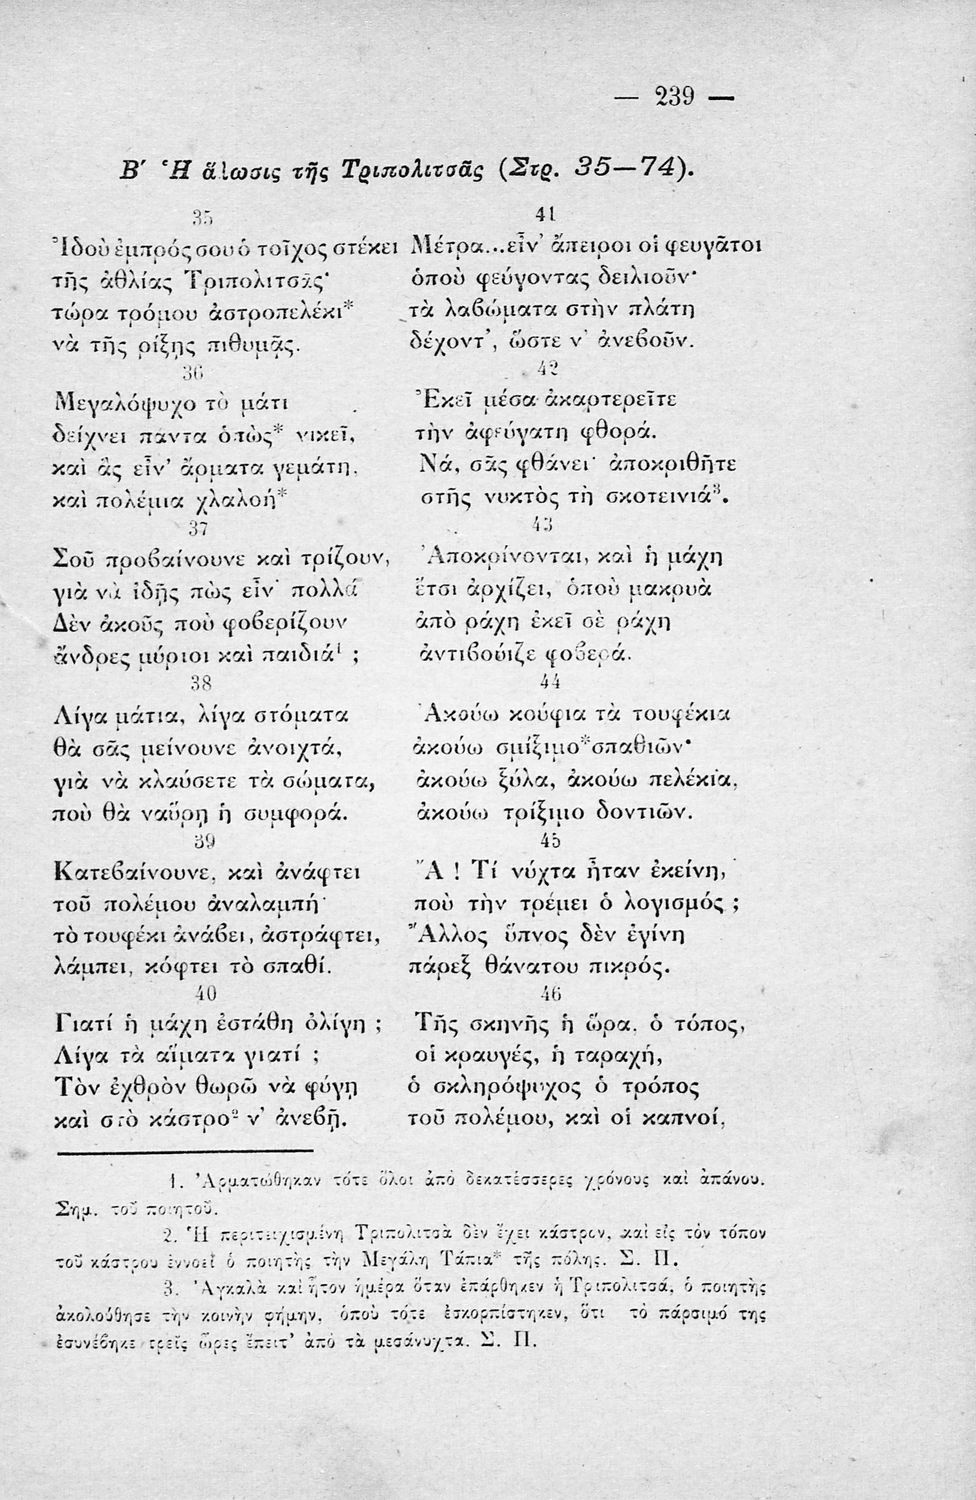 — 239 —
Β΄ Ἡ ἅλωσις τῆς Τριπολιτσᾶς (Στρ. 35—74).
35
Ἰδοὺ ἐμπρός σου ὁ τοῖχος στέκει
τῆς ἀθλίας Τριπολιτσᾶς·
τώρα τρόμου ἀστροπελέκι*
νὰ τῆς ρίξῃς πιθυμᾷς.
36
Μεγαλόψυχο τὸ μάτι
δείχνει πάντα ὁπὼς* νικεῖ,
καὶ ἂς εἶν’ ἄρματα γεμάτη,
καὶ πολέμια χλαλοή*
37
Σοῦ προβαίνουνε καὶ τρίζουν,
γιὰ νὰ ἰδῇς πὼς εἶν’ πολλά
Δὲν ἀκοῦς ποὺ φοβερίζουν
ἄνδρες μύριοι καὶ παιδιά¹ ;
38
Λίγα μάτια, λίγα στόματα
θὰ σᾶς μείνουνε ἀνοιχτά,
γιὰ νὰ κλαύσετε τὰ σώματα,
ποὺ θὰ ναὕρῃ ἡ συμφορά.
39
Κατεβαίνουνε, καὶ ἀνάφτει
τοῦ πολέμου ἀναλαμπή·
τὸ τουφέκι ἀνάβει, ἀστράφτει,
λάμπει, κόφτει τὸ σπαθί.
40
Γιατί ἡ μάχη ἐστάθη ὀλίγη ;
Λίγα τὰ αἵματα γιατί ;
Τὸν ἐχθρὸν θωρῶ νὰ φύγῃ
καὶ στὸ κάστρο² ν’ ἀνεβῇ.
41
Μέτρα...εἶν’ ἄπειροι οἱ φευγᾶτοι
ὁποὺ φεύγοντας δειλιοῦν·
τὰ λαβώματα στὴν πλάτη
δέχοντ’, ὥστε ν’ ἀνεβοῦν.
42
Ἐκεῖ μέσα ἀκαρτερεῖτε
τὴν ἀφεύγατη φθορά.
Νά, σᾶς φθάνει· ἀποκριθῆτε
στῆς νυκτὸς τὴ σκοτεινιά³.
43
Ἀποκρίνονται, καὶ ἡ μάχη
ἔτσι ἀρχίζει, ὁποὺ μακρυὰ
ἀπὸ ράχη ἐκεῖ σὲ ράχη
ἀντιβούιζε φοβερά.
44
Ἀκούω κούφια τὰ τουφέκια
ἀκούω σμίξιμο* σπαθιῶν·
ἀκούω ξύλα, ἀκούω πελέκια,
ἀκούω τρίξιμο δοντιῶν.
45
Ἄ ! Τί νύχτα ἦταν ἐκείνη,
ποὺ τὴν τρέμει ὁ λογισμός ;
Ἄλλος ὕπνος δὲν ἐγίνη
πάρεξ θάνατου πικρός.
46
Τῆς σκηνῆς ἡ ὥρα, ὁ τόπος,
οἱ κραυγές, ἡ ταραχή,
ὁ σκληρόψυχος ὁ τρόπος
τοῦ πολέμου, καὶ οἱ καπνοί,
1. Ἀρματώθηκαν τότε ὅλοι ἀπὸ δεκατέσσερες χρόνους καὶ ἀπάνου.
Σημ. τοῦ ποιητοῦ.
2. Ἡ περιτειχισμένη Τριπολιτσὰ δὲν ἔχει κάστρον, καὶ εἰς τὸν τόπον
τοῦ κάστρου ἐννοεῖ ὁ ποιητὴς τὴν Μεγάλη Τάπια* τῆς πόλης. Σ. Π.
3. Ἀγκαλὰ καὶ ἦτον ἡμέρα ὅταν ἐπάρθηκεν ἡ Τριπολιτσά, ὁ ποιητὴς
ἀκολούθησε τὴν κοινὴν φήμην, ὁποὺ τότε ἐσκορπίστηκεν, ὅτι τὸ πάρσιμό της
ἐσυνέβηκε τρεῖς ὧρες ἔπειτ’ ἀπὸ τὰ μεσάνυχτα. Σ. Π.